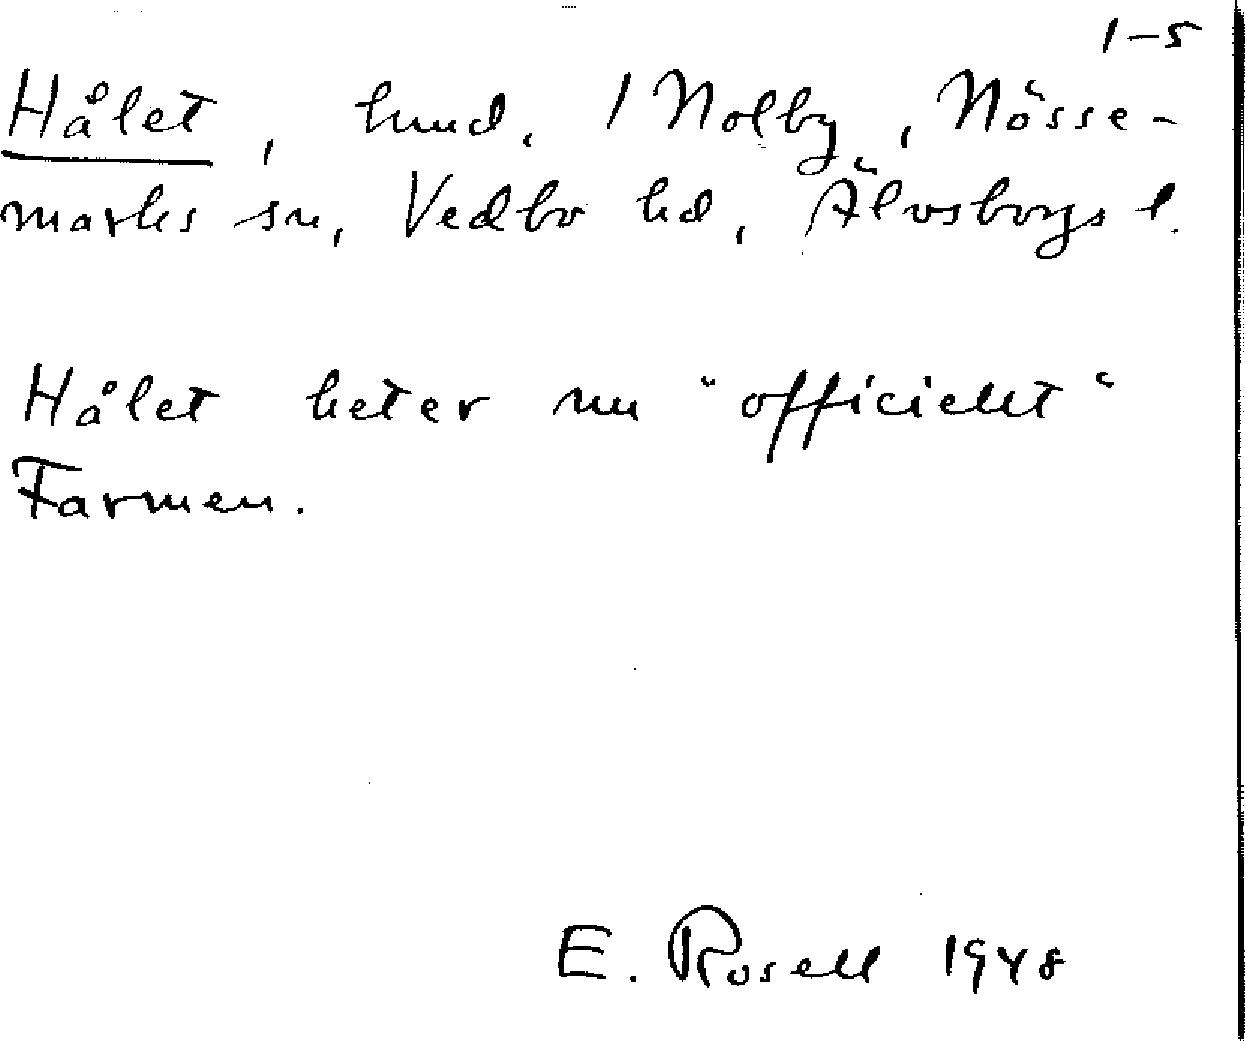 1-5
Hålet, hmd. 1 Nolby, Nösse-
marks sn, Vedbo hd, Älvsborgs l.
Hålet heter nu "officiellt"
Farmen.
E. Rosell 1948